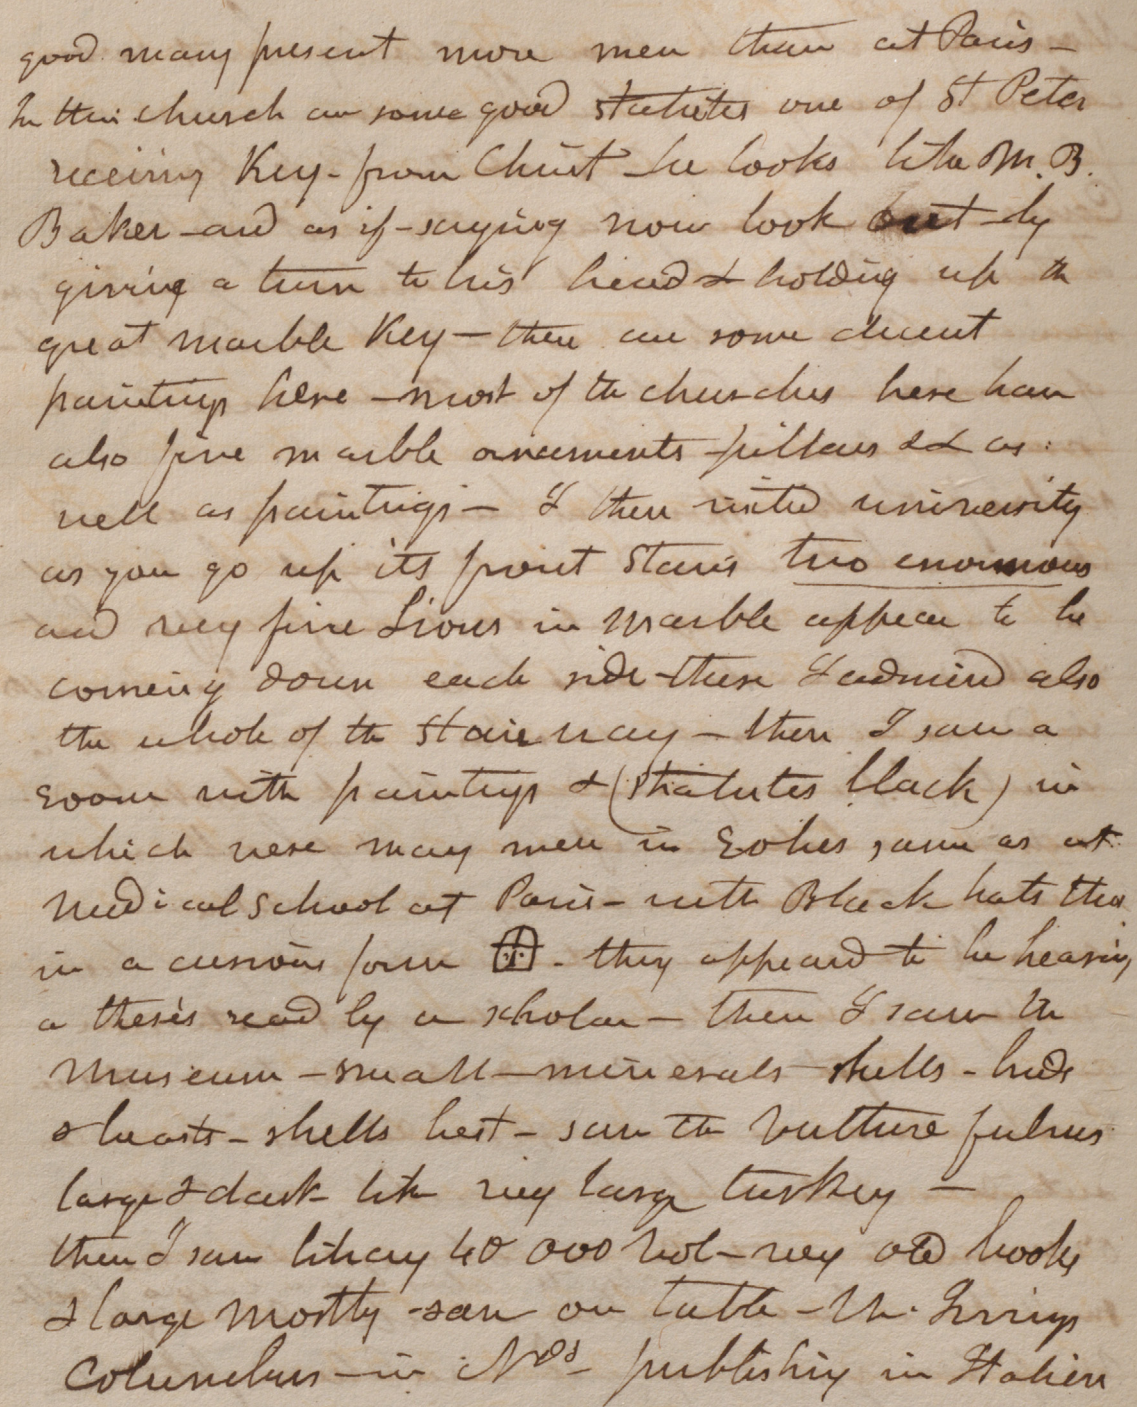 good many present more men than at Paris –
In this church are some good statutes one of St Peter
receiving Key – from Christ he looks like M. B.
Baker – and as if – saying now look out – by
giving a turn to his head & holding up the
great marble Key – there are some decent
paintings here – most of the churches here have
also fine marble ornaments – pillars && as
well as paintings – I then visited university
as you go up its front Stairs two enormous
and very fine Lions in marble appear to be
coming down each side – these I admired also
the whole of the stair way – then I saw a
room with paintings & (statutes black) in
which were many men in robes, same as at
Medical School at Paris – with Black hats thus
in a curious form – they appeard to be hearing
a thesis read by a scholar – then I saw the
Museum – small – minerals – shells – birds
& beasts – shells best – saw the Vulture fulvus
large & dark like very large turkey –
then I saw library 40 000 vol – very old books
& large mostly – saw on table – W. Irvings
Columbus – in Nos – publishing in Italien